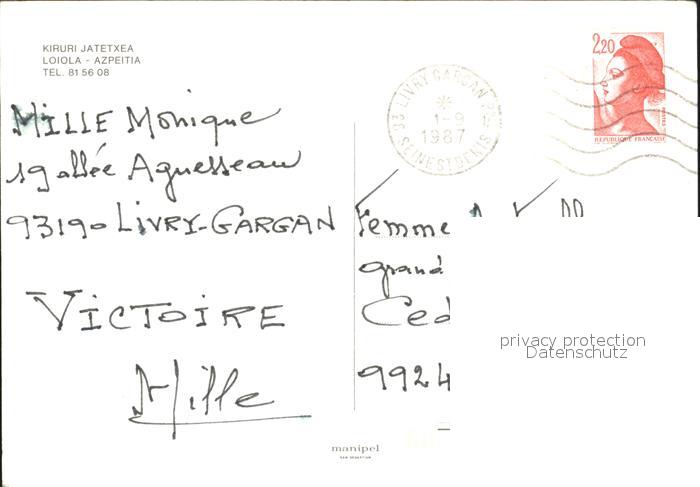 KIRURI JATETXEA
LOIOLA - AZPEITIA
TEL. 81 56 08
MILLE Monique
19 allée Aguesseau
93190 LIVRY-GARGAN
VICTOIRE
Mille
93 LIVRY GARGAN
1-9
1987
SEINE ST DENIS
2,20
REPUBLIQUE FRANÇAISE
Femme
grand
Ced
9924
privacy protection
Datenschutz
manipel
SAN SEBASTIAN